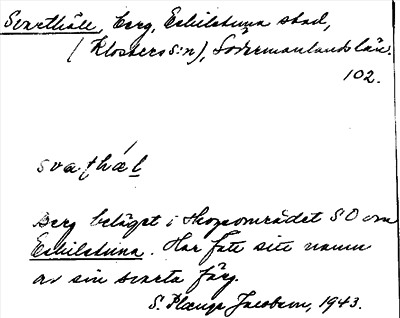 Svarthäll, berg, Eskilstuna stad,
(Klosters s:n), Södermanlands län.
102.
svaṭhǽl
Berg beläget i skogsområdet SO om
Eskilstuna. Har fått sitt namn
av sin svarta färg.
S. Plænge Jacobson, 1943.